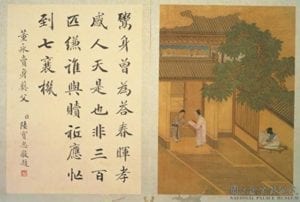 鬻身曾為答春暉孝
感人天是也非三百
匹縑誰與贖祗應忙
到七襄機
董永賣身葬父
臣陸寶忠敬題
NATIONAL PALACE MUSEUM